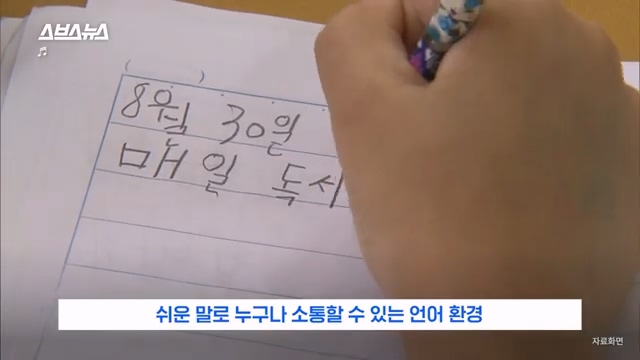 스브스뉴스
(          )
8월 30일
매일 독서
쉬운 말로 누구나 소통할 수 있는 언어 환경
자료화면